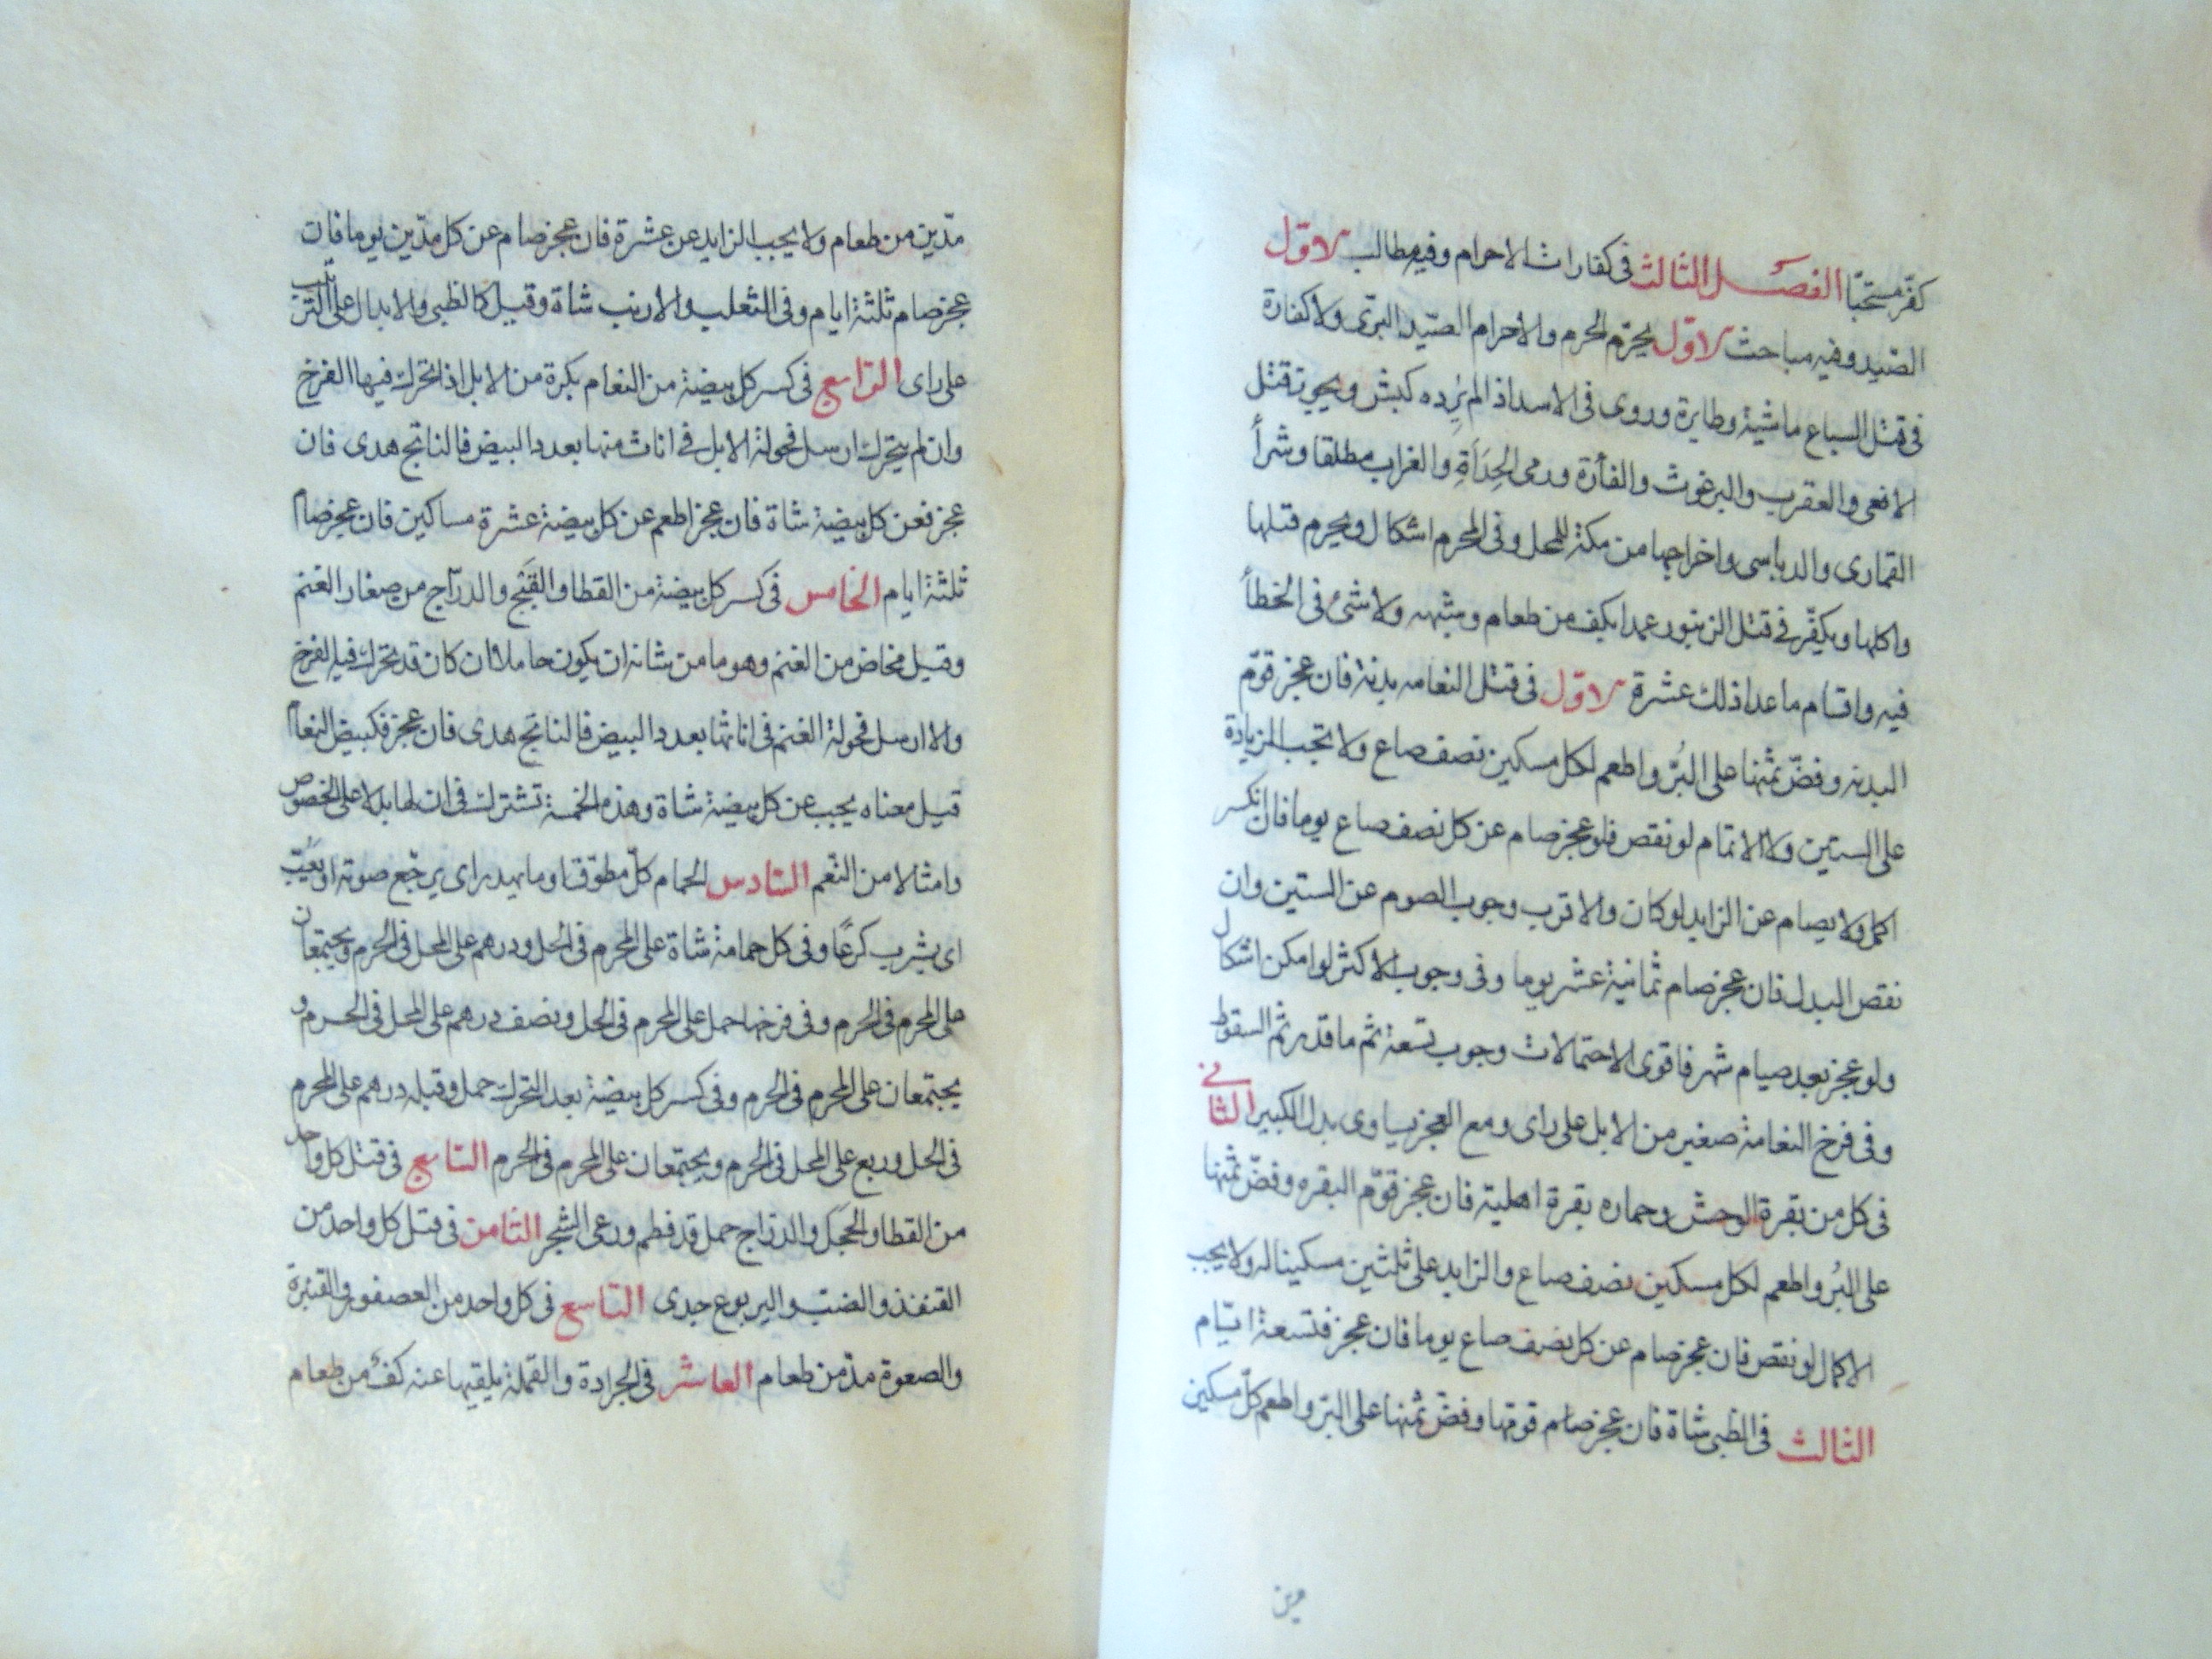 كفّر مستحبّا الفصل الثالث فى كفارات الاحرام وفيه مطالب الاوّل
الصّيد وفيه مباحث الاوّل يحرّم الحرم والاحرام الصّيد البرّى ولا كفارة
فى قتل السباع ماشية وطايرة وروى فى الاسد اذا لم يُرِده كبش ويجوز قتل
الافعى والعقرب والبرغوث والفأرة ورمى الحِدَأَةِ والغراب مطلقا وشرأ
القمارى والدباسى واخراجها من مكة للمحل وفى المحرم اشكال ويحرم قتلها
واكلها ويكفّر فى قتل الزنبور عمدا بكف من طعام وشبهه ولا شئ فى الخطأ
فيه واقسام ما عدا ذلك عشرة الاوّل فى قتل النعامه بدنة فان عجز قوّم
البدنه وفضّ ثمنها على البُرّ واطعم لكل مسكين نصف صاع ولا تجب الزيادة
على الستين ولا الاتمام لو نقص فلو عجز صام عن كل نصف صاع يوما فان انكسر
اكمل ولا يصام عن الزايد لو كان والاقرب وجوب الصوم عن الستين وان
نقص البدل فان عجز صام ثمانية عشر يوما وفى وجوب الاكثر لو امكن اشكال
ولو عجز بعد صيام شهر فاقوى الاحتمالات وجوب تسعة ثم ما قدر ثم السقوط
وفى فرخ النعامة صغير من الابل على راى ومع العجز يساوى بدل الكبير الثانى
فى كل من بقرة الوحش وحماره بقرة اهلية فان عجز قوّم البقره وفضّ ثمنها
على البُرّ واطعم لكل مسكين نصف صاع والزايد على ثلثين مسكينا له ولا يجب
الاكمال لو نقص فان عجز صام عن كل نصف صاع يوما فان عجز فتسعة ايّام
الثالث فى الظبى شاة فان عجز صام قومها وفضّ ثمنها على البرّ واطعم كلّ مسكين
مدّين من طعام ولا يجب الزايد عن عشرة فان عجز صام عن كل مدّين يوما فان
عجز صام ثلثة ايام وفى الثعلب والارنب شاة وقيل كالظبى والابدال على الترتيب
على راى الرّابع فى كسر كل بيضة من النعام بكرة من الابل اذا تحرك فيها الفرخ
وان لم يتحرك ارسل فحولة الابل فى اناث منها بعدد البيض فالناتج هدى فان
عجز فعن كل بيضة شاة فان عجز اطعم عن كل بيضة عشرة مساكين فان عجز صام
ثلثة ايام الخامس فى كسر كل بيضة من القطا والقَبَج والدرّاج من صغار الغنم
وقيل مخاض من الغنم وهو ما من شانه ان يكون حاملا ان كان قد تحرك فيه الفرخ
والا ارسل فحولة الغنم فى اناثها بعدد البيض فالناتج هدى فان عجز فكبيض النعام
قيل معناه يجب عن كل بيضة شاة وهذه الخمسة تشترك فى ان لها بدلا على الخصوص
وامثالا من النّعم السّادس الحمام كلّ مطوّق او ما يهدر اى يرجّع صوته او يَعُبّ
اى يشرب كرعًا وفى كل حمامة شاة على المحرم فى الحل ودرهم على المحل فى الحرم ويجتمعان
على المحرم فى الحرم وفى فرخها حمل على المحرم فى الحل ونصف درهم على المحل فى الحرم و
يجتمعان على المحرم فى الحرم وفى كسر كل بيضة بعد التحرك حمل وقبله درهم على المحرم
فى الحل وربع على المحل فى الحرم ويجتمعان على المحرم فى الحرم السّابع فى قتل كل واحد
من القطا والحَجَل والدرّاج حمل قد فطم ورعى الشجر الثامن فى قتل كل واحد من
القنفذ والضبّ واليربوع جدى التاسع فى كل واحد من العصفور والقنبرة
والصعوة مدّ من طعام العاشر فى الجرادة والقملة يلقيها عنه كفّ من طعام
مدّين